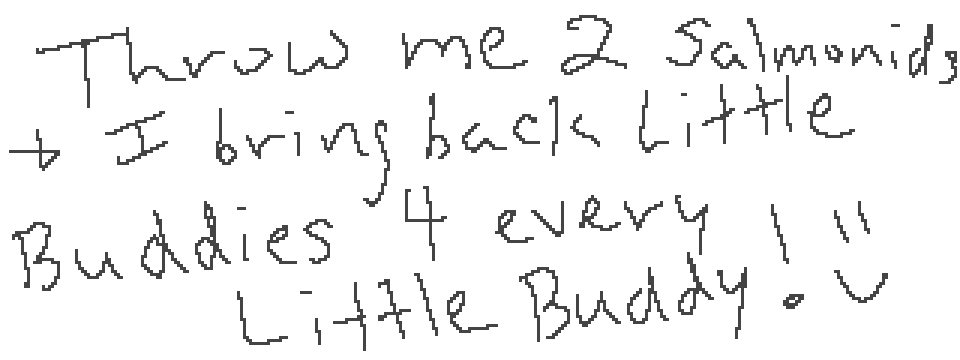 Throw me 2 Salmonids
+ I bring back Little
Buddies 4 every
Little Buddy! :)